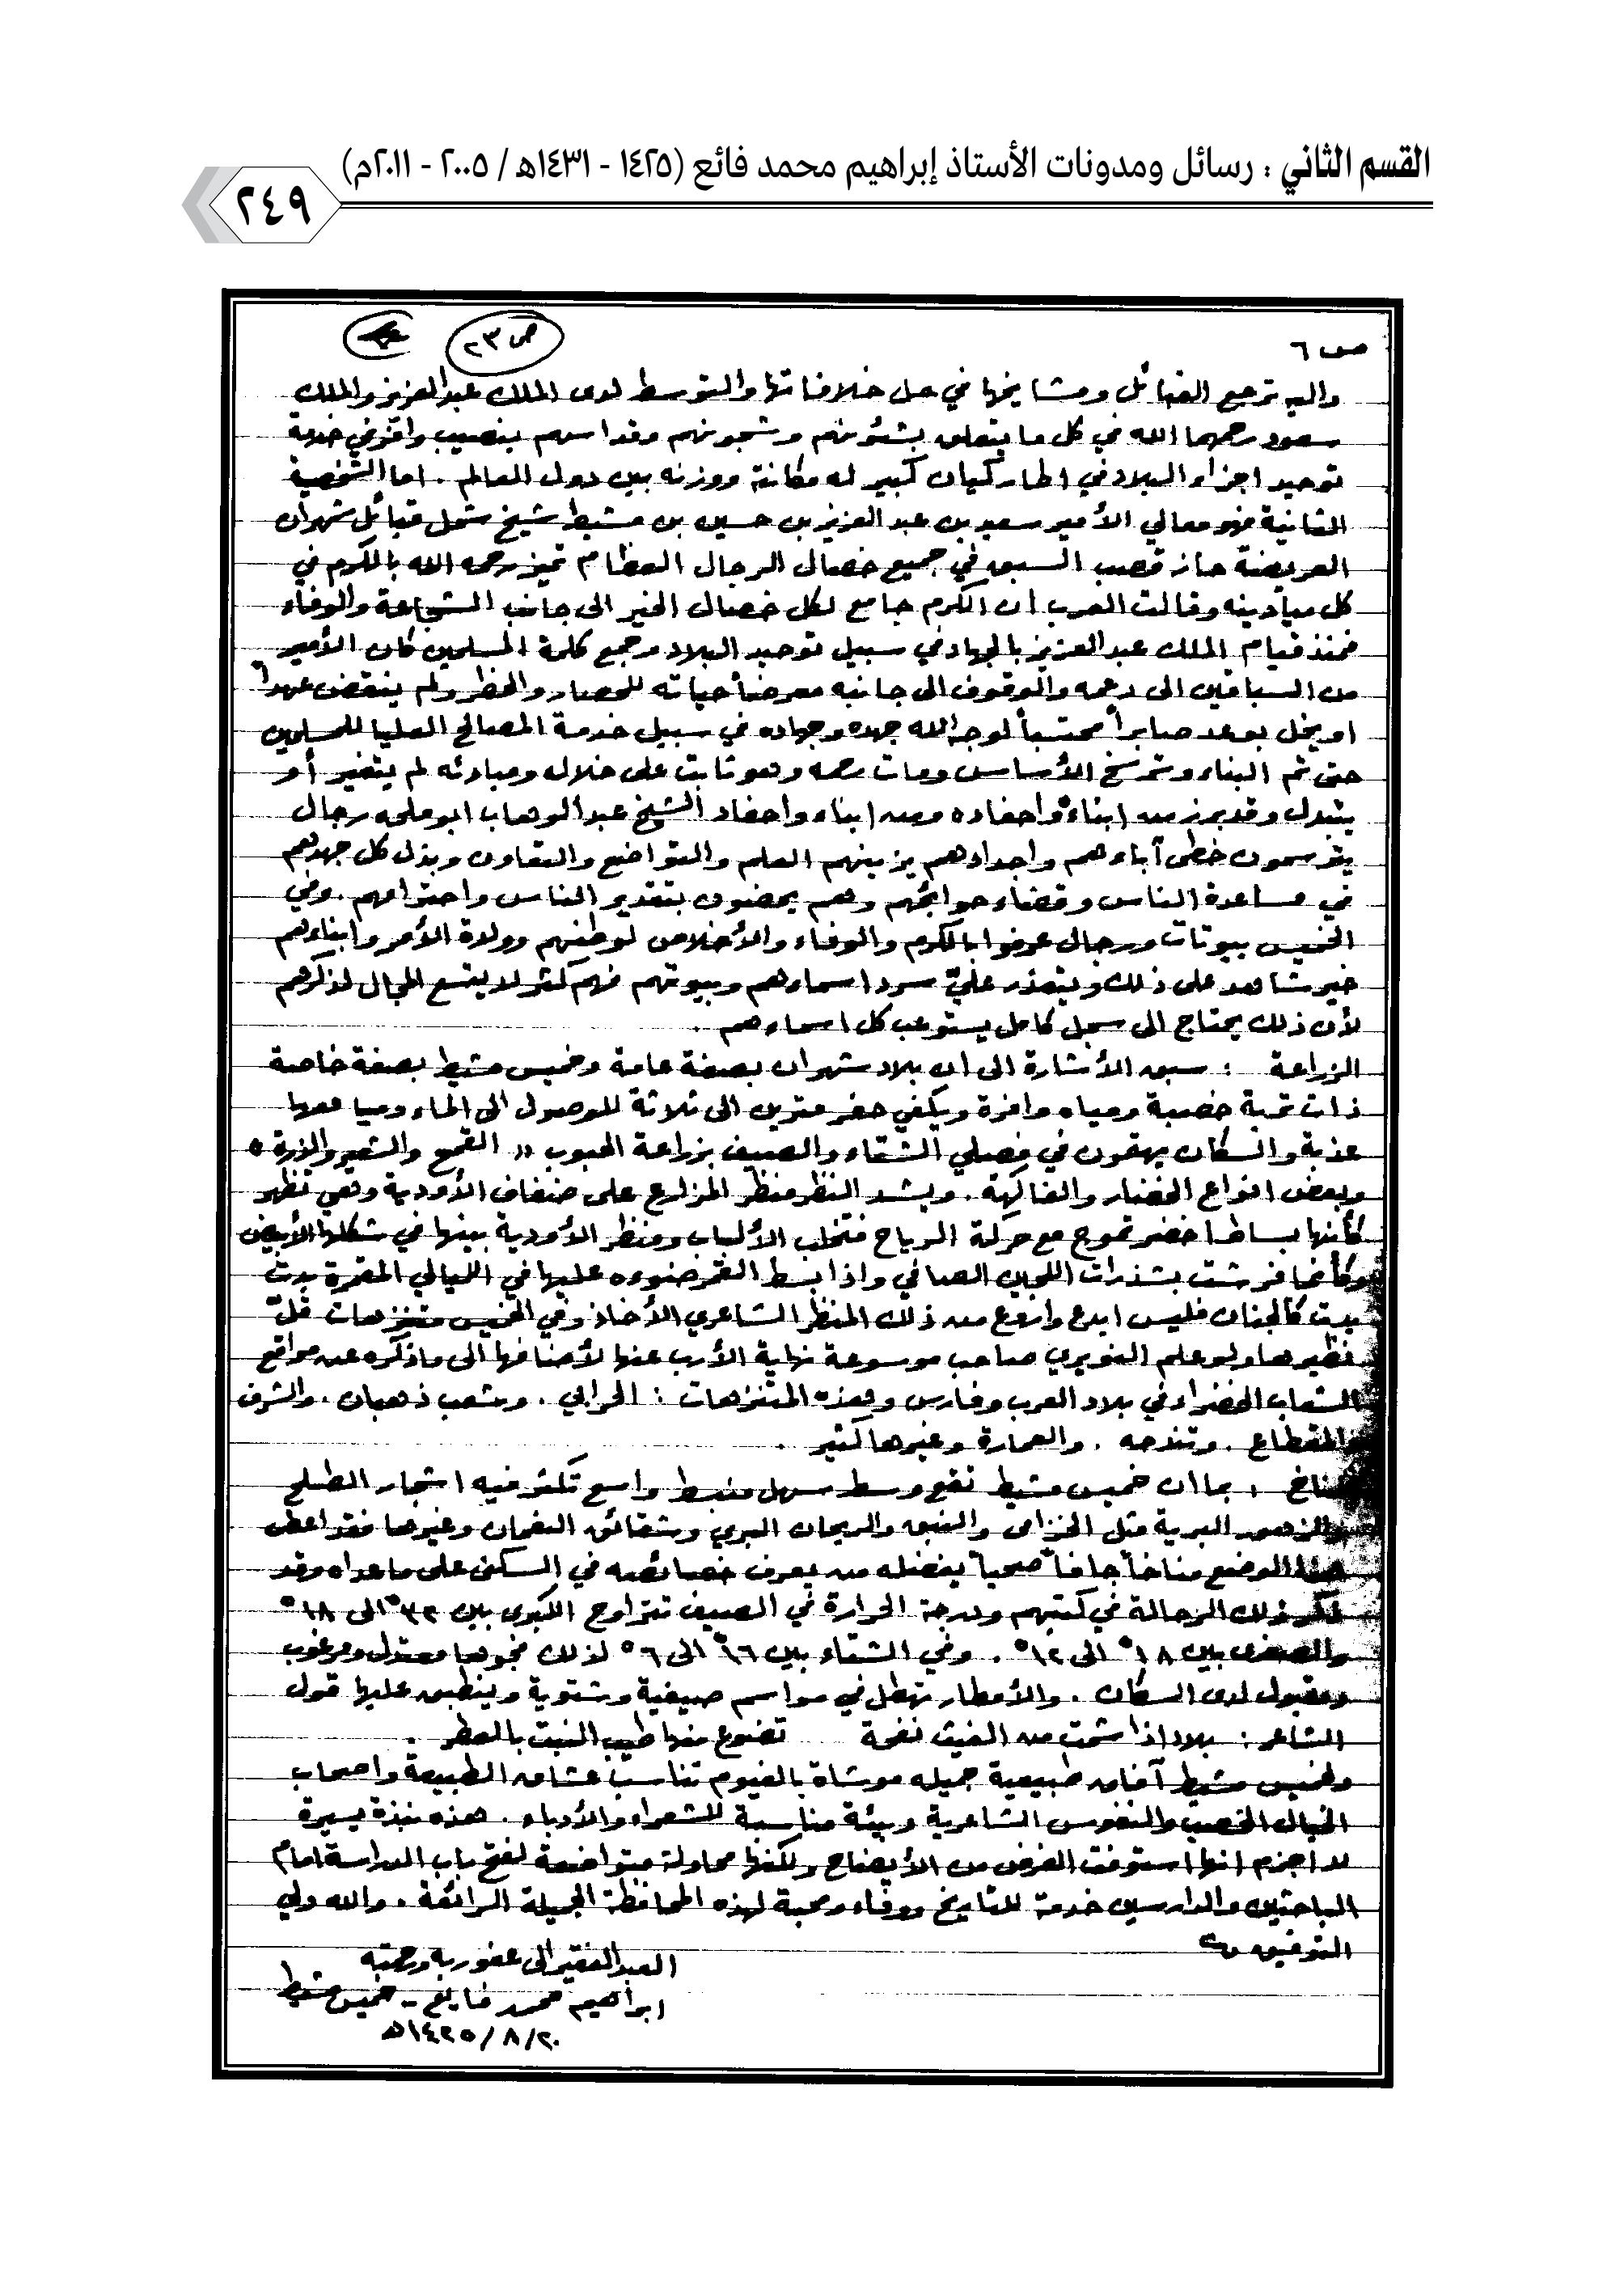 القسم الثاني : رسائل ومدونات الأستاذ إبراهيم محمد فائع (١٤٢٥ - ١٤٣١هـ / ٢٠٠٥ - ٢٠١١م)
٢٤٩
ص ٦
ص ٢٣
واليه ترجع القبائل ومشايخها في حل خلافاتها والتوسط لدى الملك عبدالعزيز والملك
سعود رحمهما الله في كل ما يتعلق بشئونهم وشجونهم وقد اسهم بنصيب وافر في خدمة
توحيد اجزاء البلاد في اطار كيان كبير له مكانة ووزنه بين دول العالم . اما الشخصية
الثانية فهو معالي الأمير سعيد بن عبد العزيز بن حسين بن مشيط شيخ شمل قبائل شهران
العريضة حاز قصب السبق في جميع خصال الرجال العظام تميز رحمه الله بالكرم في
كل ميادينه وقالت العرب ان الكرم جامع لكل خصال الخير الى جانب الشجاعة والوفاء
فمنذ قيام الملك عبدالعزيز بالجهاد في سبيل توحيد البلاد وجمع كلمة المسلمين كان الأمير
من السباقين الى دعمه والوقوف الى جانبه معرضاً حياته للحصار والخطر ولم ينقض عهداً
او يخل بوعد صابراً محتسباً لوجه الله جهده وجهاده في سبيل خدمة المصالح العليا للمسلمين
حتى تم البناء وترسخ الأساس ومات رحمه وهو ثابت على خلاله ومبادئه لم يتغير أو
يتبدل وقد برز من ابناءه واحفاده ومن ابناء واحفاد الشيخ عبدالوهاب ابوملحه رجال
يترسمون خطى آباءهم واجدادهم يزينهم العلم والتواضع والتعاون وبذل كل جهدهم
في مساعدة الناس وقضاء حوائجهم وهم يحضون بتقدير الناس واحترامهم . وفي
الخميس بيوتات ورجال عرفوا بالكرم والوفاء والأخلاص لوطنهم وولاة الأمر وأبناءهم
خير شاهد على ذلك ويتعذر عليّ سرد اسماءهم وبيوتهم فهم كثر لا يتسع المجال لذكرهم
لأن ذلك يحتاج الى سجل كامل يستوعب كل اسماءهم .
الزراعة : سبق الأشارة الى ان بلاد شهران بصفة عامة وخميس مشيط بصفة خاصة
ذات تربة خصبة ومياه وافرة ويكفي حفر مترين الى ثلاثة للوصول الى الماء ومياهها
عذبة والسكان يهتمون في فصلي الشتاء والصيف بزراعة الحبوب « القمح والشعير والذرة »
وبعض انواع الخضار والفاكهة . ويشد النظر منظر المزارع على ضفاف الأودية وهي تظهر
كأنها بساط اخضر تموج مع حركة الرياح فتخلب الألباب ومنظر الأودية بينها في شكلها الأبيض
وكأنما فرشت بشذرات اللجين الصافي واذا بسط القمر ضوءه عليها في الليالي المقمرة بدت
بدت كالجنان فليس ابدع واروع من ذلك المنظر الشاعري الأخاذ وفي الخميس متنزهات قلّ
نظيرها ولو علم النويري صاحب موسوعة نهاية الأرب عنها لأضافها الى ما ذكره عن مواقع
الشعاب الخضراء في بلاد العرب وفارس وهذه المتنزهات : الحرابي . وشعب ذهبان . والشرف
والمقطاع . وتندحه . والعمارة وغيرها كثير .
المناخ : بما ان خميس مشيط تقع وسط سهل منبسط واسع تكثر فيه اشجار الطلح
والزهور البرية مثل الخزامى والنبق والريحان البري وشقائق النعمان وغيرها فقد اعطى
هذا الوضع مناخاً جافاً صحياً يفضله من يعرف خصائصه في السكنى على ما عداه وقد
ذكر ذلك الرحالة في كتبهم ودرجة الحرارة في الصيف تتراوح الكبرى بين ٣٢° الى ١٨°
والصغرى بين ١٨° الى ١٢° . وفي الشتاء بين ١٦° الى ٦° لذلك فجوها معتدل ومرغوب
ومقبول لدى السكان . والأمطار تهطل في مواسم صيفية وشتوية وينطبق عليها قول
الشاعر : بلاد اذا شمت من الغيث نفحة تضوع منها طيب النبت بالعطر .
ولخميس مشيط آفاق طبيعية جميله موشاة بالغيوم تناسب عشاق الطبيعة واصحاب
الخيال الخصب والنفوس الشاعرية وبيئة مناسبة للشعراء والأدباء . هذه نبذة يسيرة
لا اجزم انها استوفت الغرض من الأيضاح ولكنها محاولة متواضعة لفتح باب الدراسة امام
الباحثين والدارسين خدمة للتاريخ ووفاء ومحبة لهذه المحافظة الجميلة الرائعة . والله ولي
التوفيق
العبد الفقير الى عفو ربه ورحمته
ابراهيم محمد فايع - خميس مشيط
٢٠/ ٨ /١٤٢٥هـ